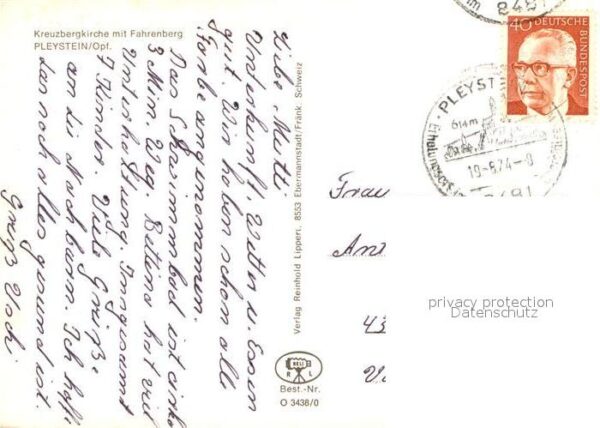 Kreuzbergkirche mit Fahrenberg
PLEYSTEIN/Opf.
Liebe Mutti
Unterkunft, Wetter u. Essen
gut. Wir haben schon alle
Farbe angenommen.
Das Schwimmbad ist
3 Min. Weg. Bettina hat viel
Unterhaltung. Insgesamt
7 Kinder. Viele Grüße
an die Nachbarn. Ich hoffe
das noch alles gesund ist.
Gruß Uschi
Verlag Reinhold Lippert, 8553 Ebermannstadt/Fränk. Schweiz
RELI
R L
Best.-Nr.
O 3436/0
8481
40 DEUTSCHE
BUNDESPOST
PLEYST
614m
Erholungsort
19-6.74-8
8481
Frau
43
privacy protection
Datenschutz